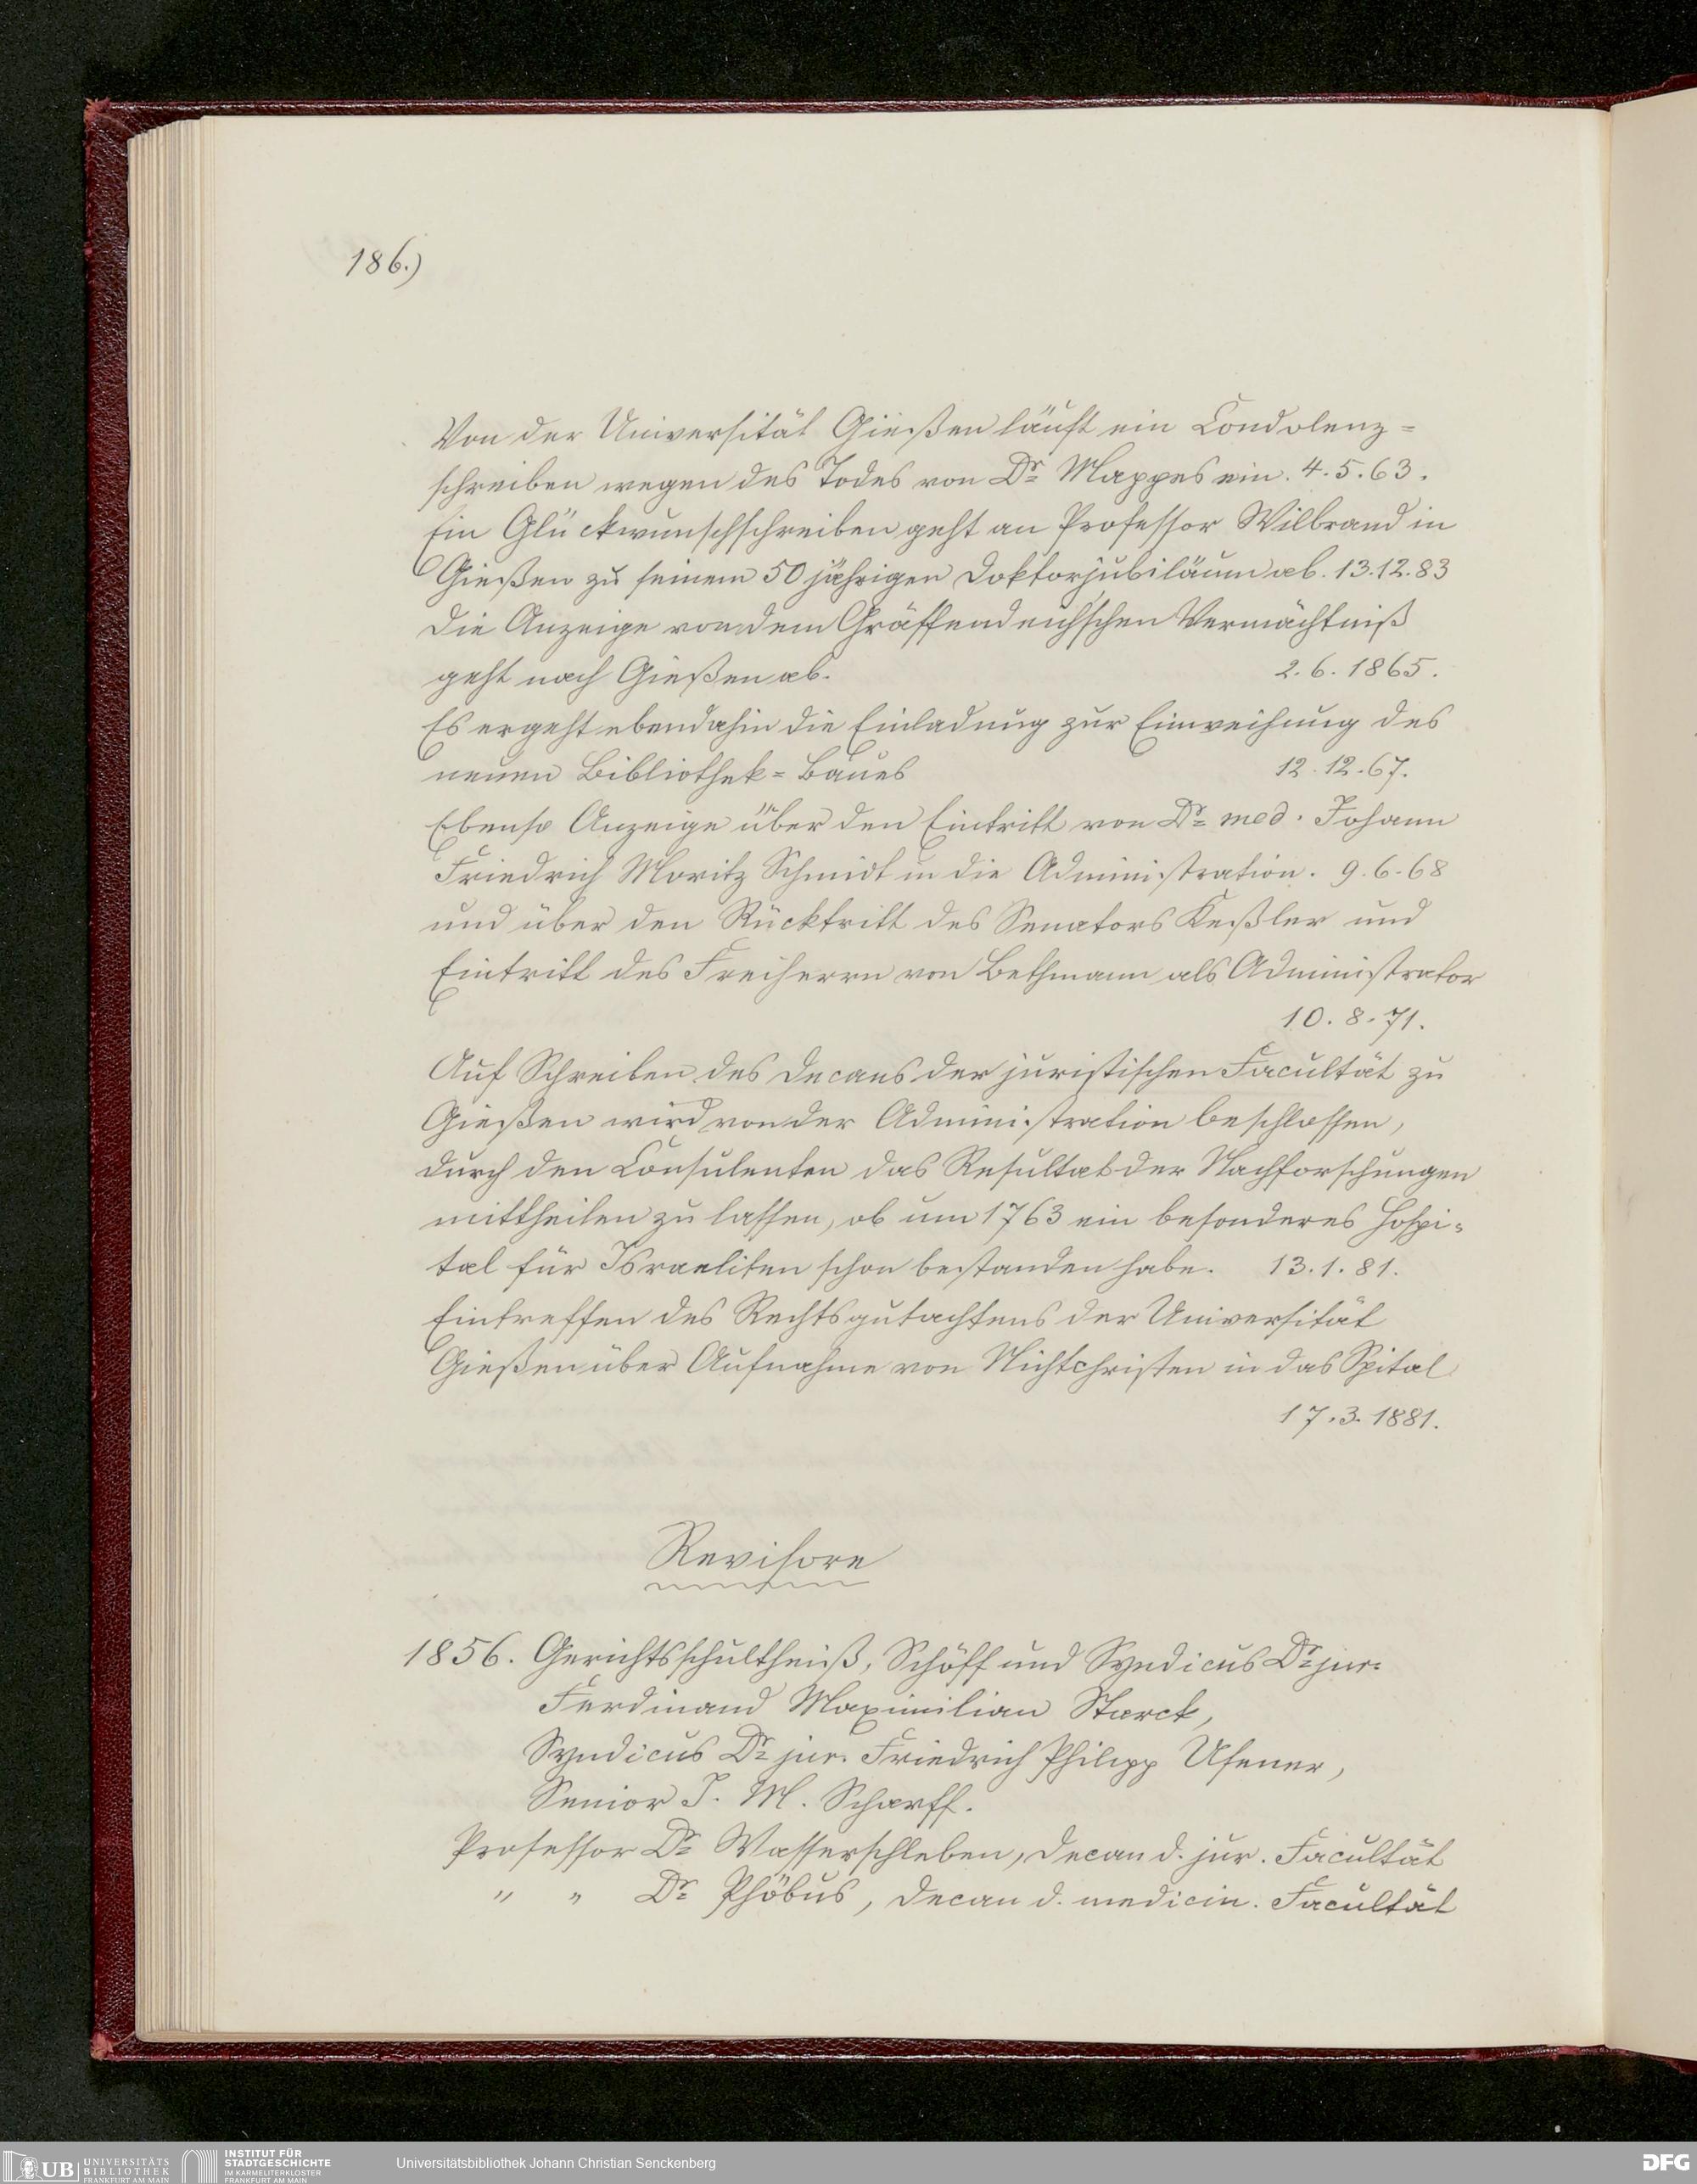 186.)
Von der Universität Gießen läuft ein Condolenz=
schreiben wegen des Todes von Dr. Mappes ein. 4.5.63.
Ein Glückwunschschreiben geht an Professor Wilbrand in
Gießen zu seinem 50 jährigen Doktorjubiläum ab. 13.12.83
Die Anzeige von dem Gräffendeich'schen Vermächtniß
geht nach Gießen ab. 2.6.1865.
Es ergeht ebendahin die Einladung zur Einweihung des
neuen Bibliothek=Baues 12.12.67.
Ebenso Anzeige über den Eintritt von Dr. med. Johann
Friedrich Moritz Schmidt in die Administration. 9.6.68
und über den Rücktritt des Senators Keßler und
Eintritt des Freiherrn von Bethmann als Administrator
10.8.71.
Auf Schreiben des Decans der juristischen Facultät zu
Gießen wird von der Administration beschlossen,
durch den Consulenten das Resultat der Nachforschungen
mittheilen zu lassen, ob um 1763 ein besonderes Hospi=
tal für Israeliten schon bestanden habe. 13.1.81.
Eintreffen des Rechtsgutachtens der Universität
Gießen über Aufnahme von Nichtchristen in das Spital
17.3.1881.
Revisore
1856. Gerichtsschultheiß, Schöff und Syndicus Dr. jur.
Ferdinand Maximilian Starck,
Syndicus Dr. jur. Friedrich Philipp Usener,
Senior J. M. Scharff.
Professor Dr. Wasserschleben, Decan d. jur. Facultät
" " Dr. Phöbus, Decan d. medicin. Facultät
UB UNIVERSITÄTS BIBLIOTHEK FRANKFURT AM MAIN
INSTITUT FÜR STADTGESCHICHTE IM KARMELITERKLOSTER FRANKFURT AM MAIN
Universitätsbibliothek Johann Christian Senckenberg
DFG